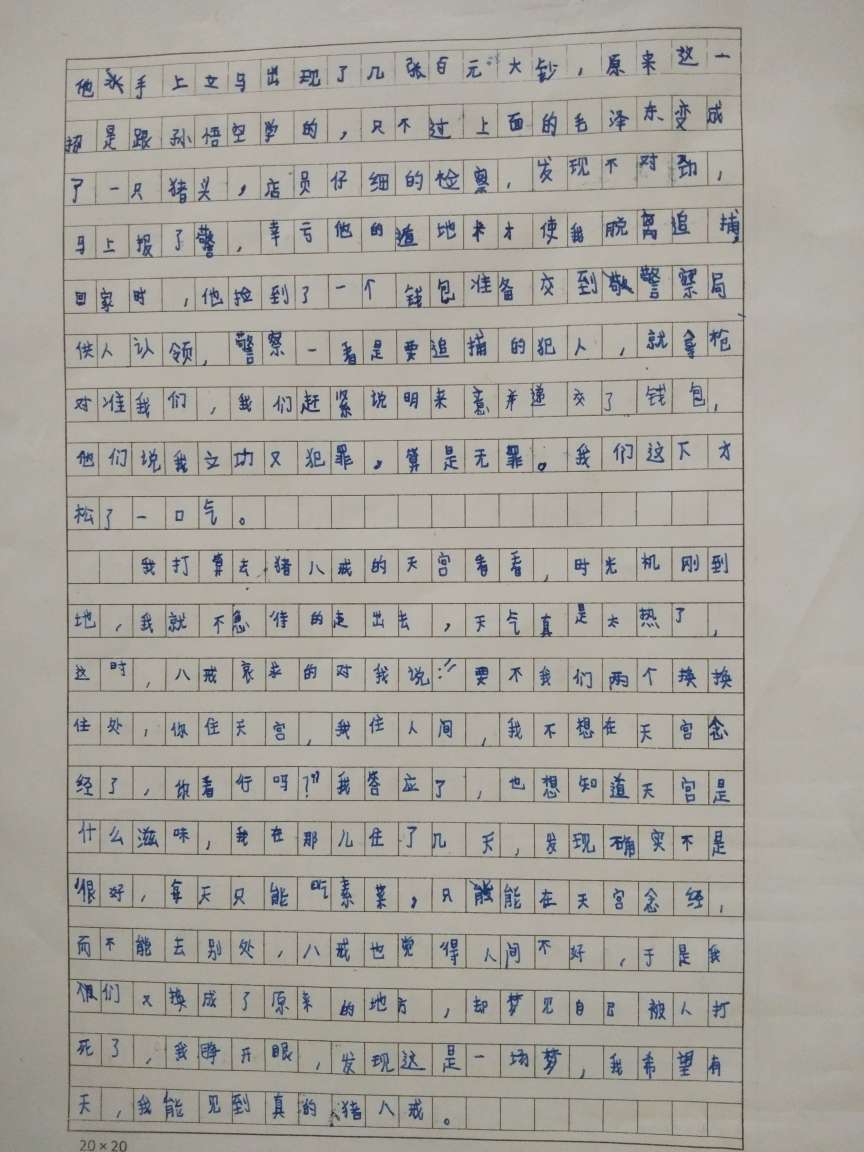 他手上立马出现了几张百元大钞，原来这一
招是跟孙悟空学的，只不过上面的毛泽东变成
了一只猪头，店员仔细的检察，发现不对劲，
马上报了警，幸亏他的遁地术才使我脱离追捕，
回家时，他捡到了一个钱包准备交到警察局
供人认领，警察一看是要追捕的犯人，就拿枪
对准我们，我们赶紧说明来意并递交了钱包，
他们说我立功又犯罪，算是无罪。我们这下才
松了一口气。
我打算去猪八戒的天宫看看，时光机刚到
地，我就不急待的走出去，天气真是太热了，
这时，八戒哀求的对我说：“要不我们两个换换
住处，你住天宫，我住人间，我不想在天宫念
经了，你看行吗？”我答应了，也想知道天宫是
什么滋味，我在那儿住了几天，发现确实不是
很好，每天只能吃素菜，只能在天宫念经，
而不能去别处，八戒也觉得人间不好，于是我
们又换成了原来的地方，却梦见自己被人打
死了，我睁开眼，发现这是一场梦，我希望有
天，我能见到真的猪八戒。
20×20